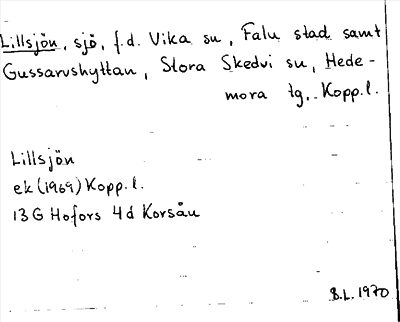 Lillsjön, sjö, f.d. Vika sn, Falu stad samt
Gussarvshyttan, Stora Skedvi sn, Hede-
mora tg, Kopp.l.
Lillsjön
ek (1969) Kopp.l.
13 G Hofors 4d Korsån
B.L. 1970